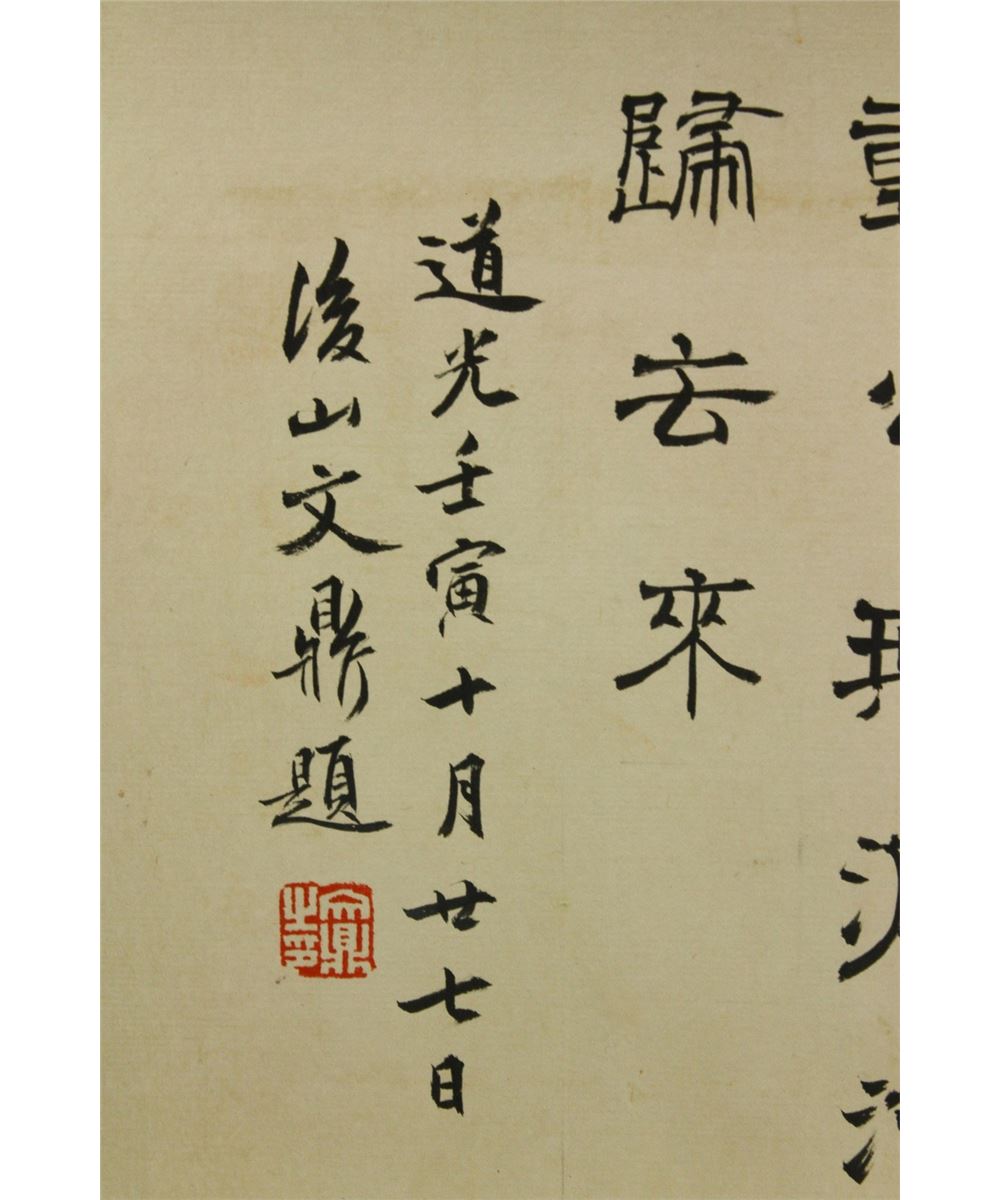 歸去來
道光壬寅十月廿七日
後山文鼎題
文鼎之印